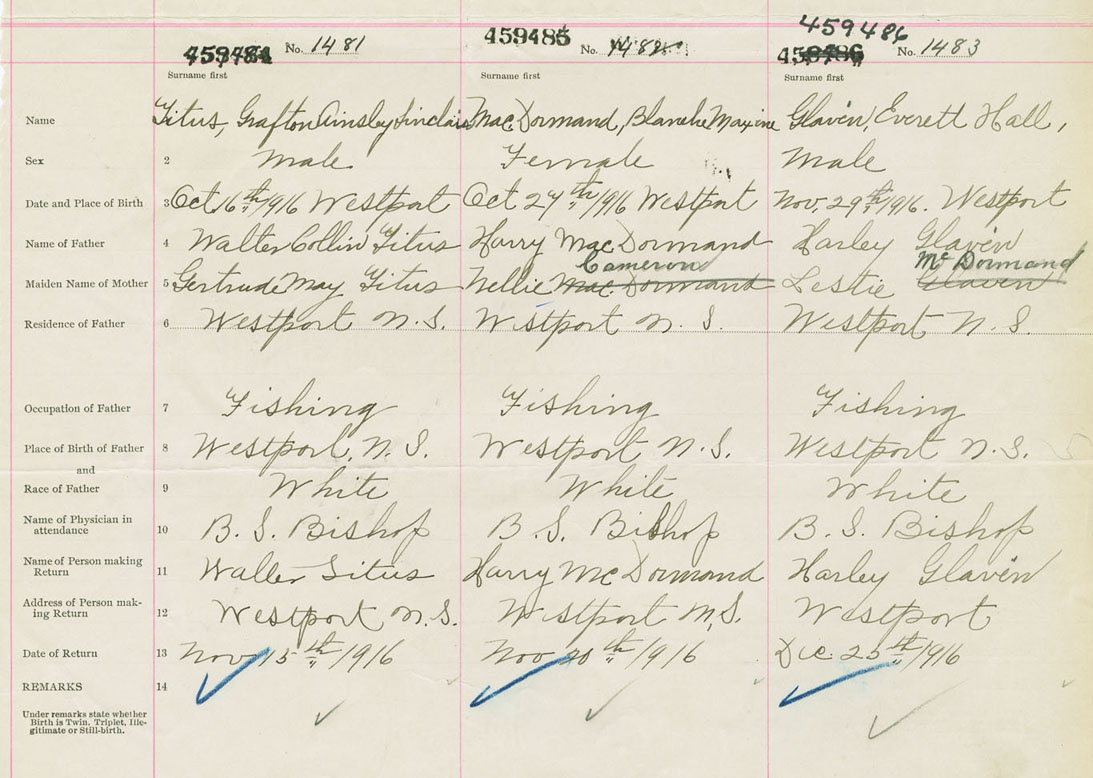 459486
459484 No. 1481 459485 No. 1482 459486 No. 1483
Surname first Surname first Surname first
Name Titus, Grafton Ainsley Sinclair MacDormand, Blanche Maxine Glavin, Everett Hall,
Sex 2 Male Female Male
Date and Place of Birth 3 Oct. 16th/1916 Westport Oct 27th/1916 Westport Nov. 29th/1916. Westport
Name of Father 4 Walter Collin Titus Harry MacDormand Harley Glavin
Cameron Mc Dormand
Maiden Name of Mother 5 Gertrude May Titus Nellie MacDormand Leslie Glaven
Residence of Father 6 Westport N.S. Westport N.S. Westport N.S.
Occupation of Father 7 Fishing Fishing Fishing
Place of Birth of Father 8 Westport, N.S. Westport N.S. Westport N.S.
and
Race of Father 9 White White White
Name of Physician in
attendance 10 B. S. Bishop B. S. Bishop B. S. Bishop
Name of Person making
Return 11 Walter Titus Harry McDormand Harley Glavin
Address of Person mak-
ing Return 12 Westport N.S. Westport N.S. Westport
Date of Return 13 Nov 15th/1916 Nov 20th/1916 Dec. 25th/1916
REMARKS 14
Under remarks state whether
Birth is Twin, Triplet, Ille-
gitimate or Still-birth.